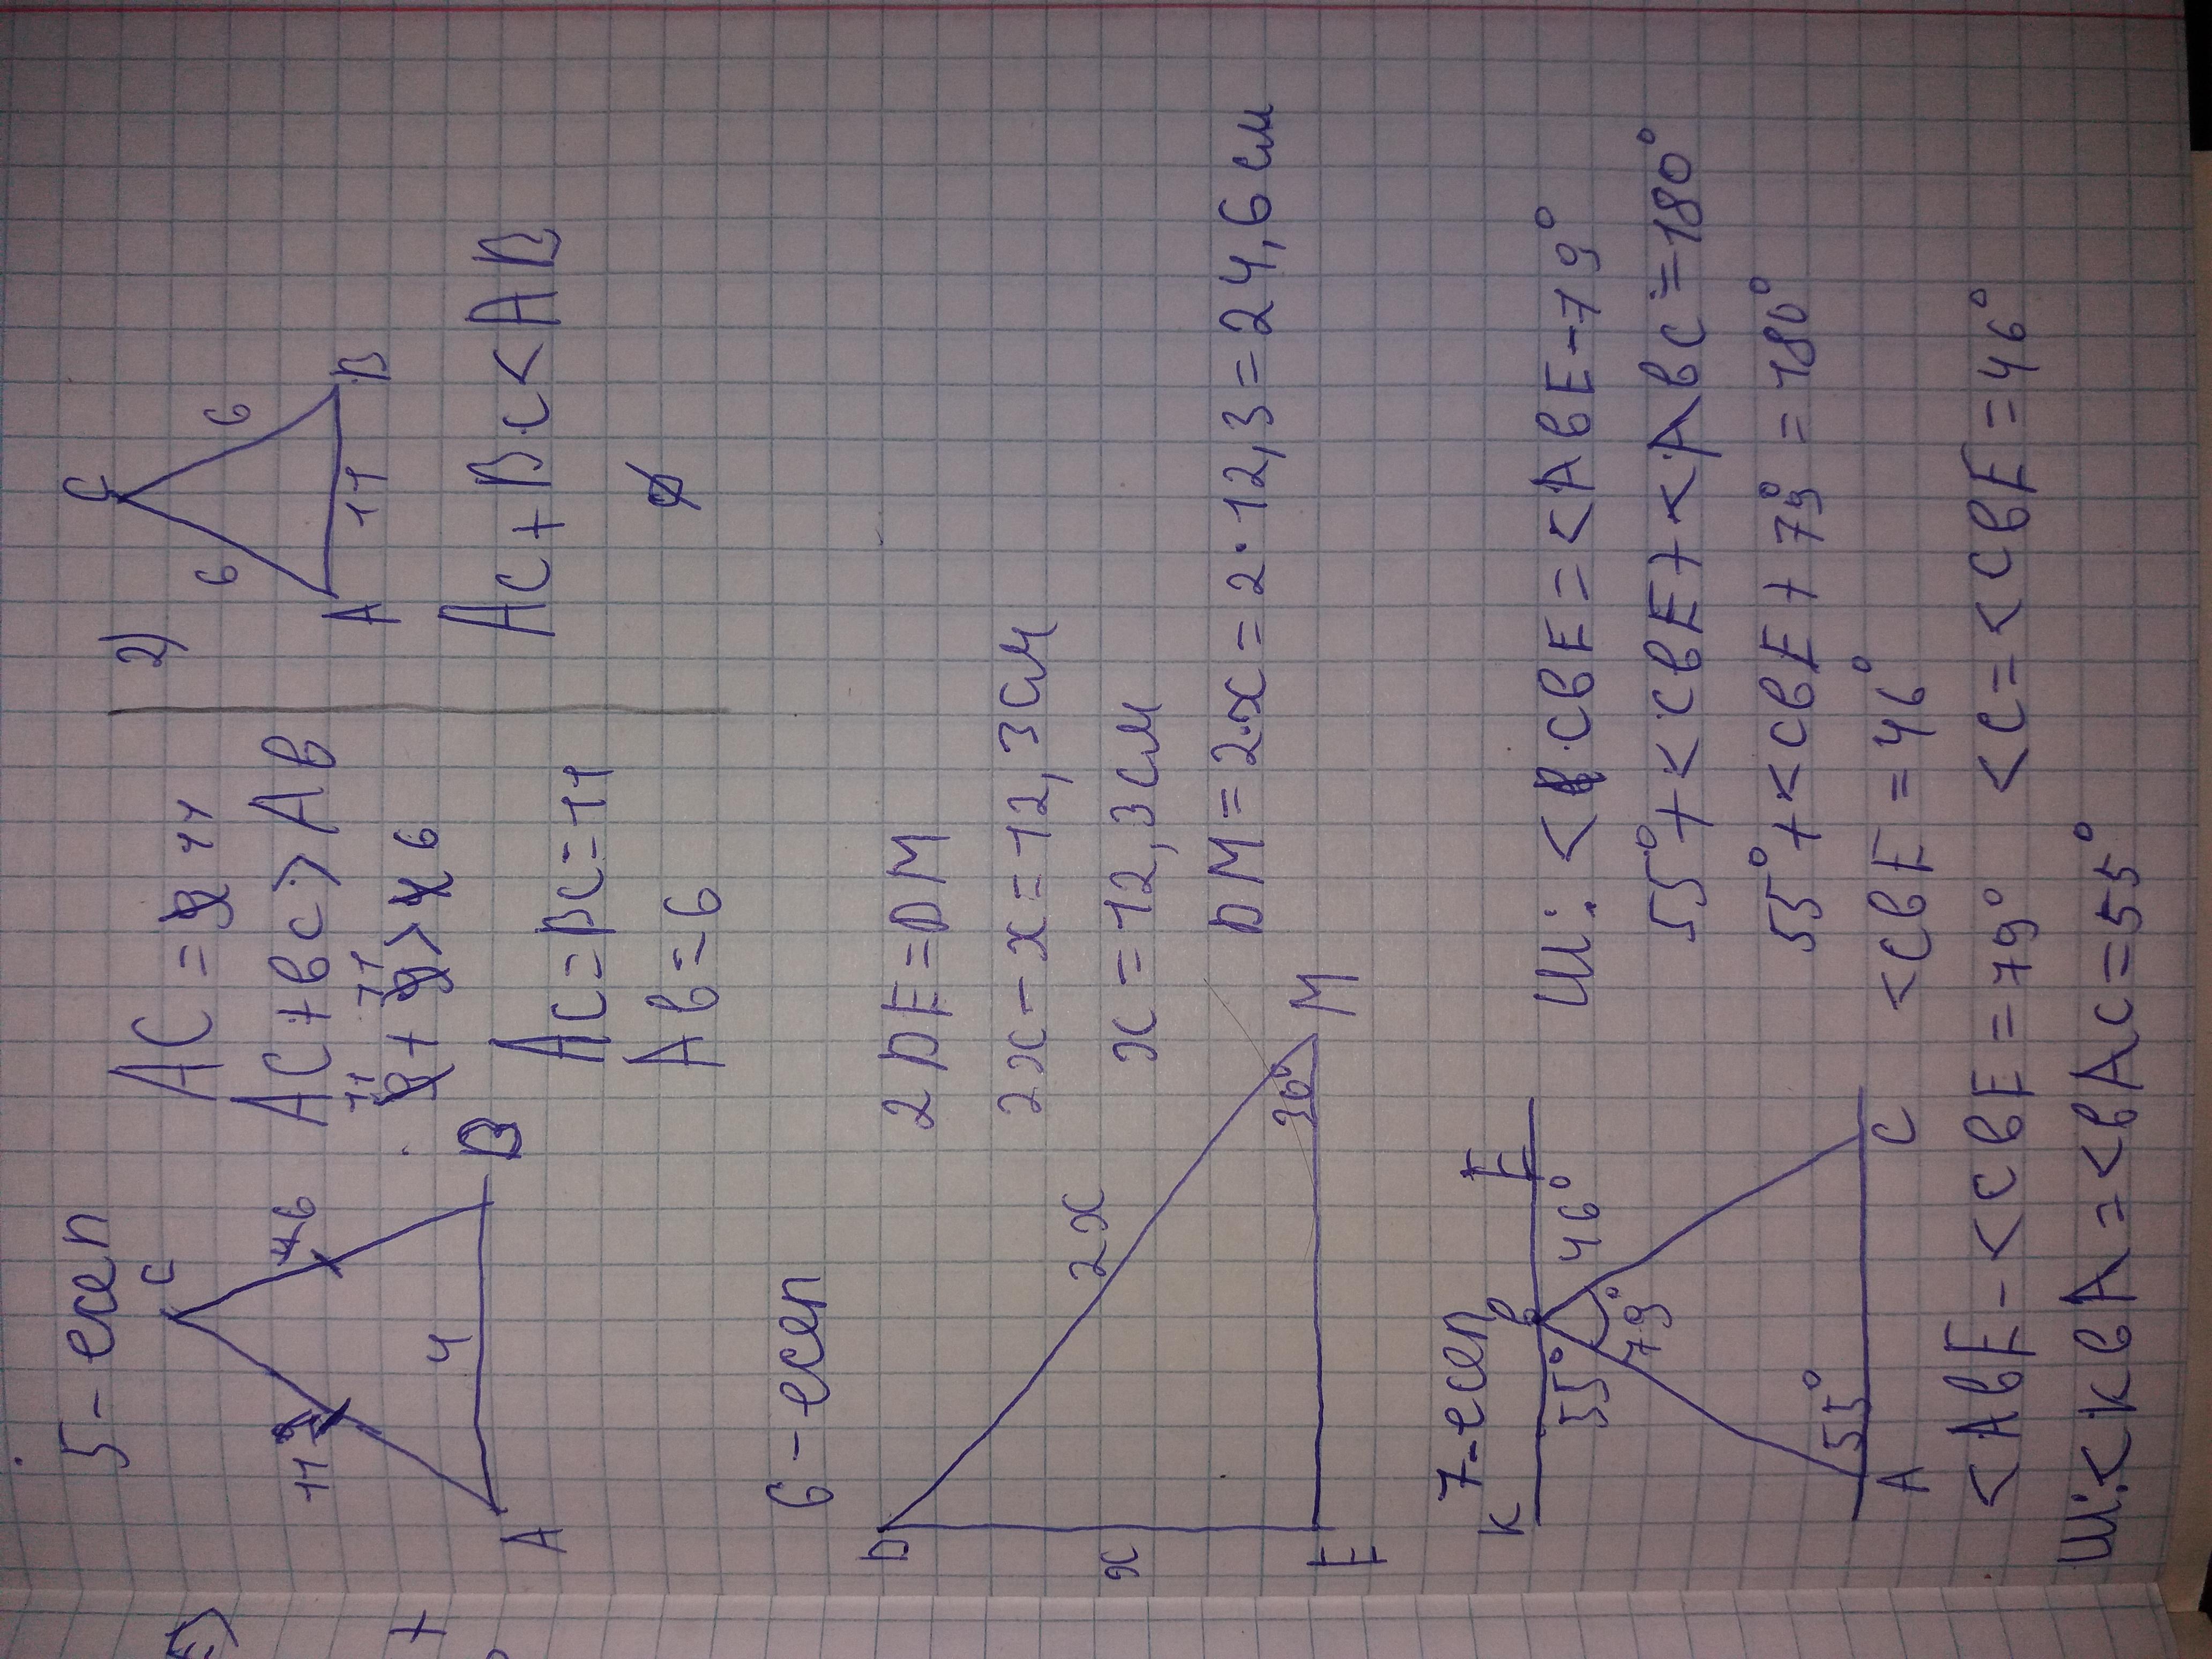 5-есеп
C
11
6
4
A
B
AC = 11
AC+BC > AB
11 + 11 > 6
AC=BC=11
AB=6
2)
C
6
6
A
11
B
AC+BC<AB
∅
6-есеп
D
x
2x
30°
E
M
2DE=DM
2x-x=12,3см
x=12,3см
DM=2·x=2·12,3=24,6см
7-есеп
K
B
E
55°
46°
79°
55°
A
C
Ш: <CBE=<ABE-79°
55°+<CBE+<ABC=180°
55°+<CBE+79°=180°
<CBE=46°
<ABE-<CBE=79°
<C=<CBE=46°
Ш:<KBA=<BAC=55°